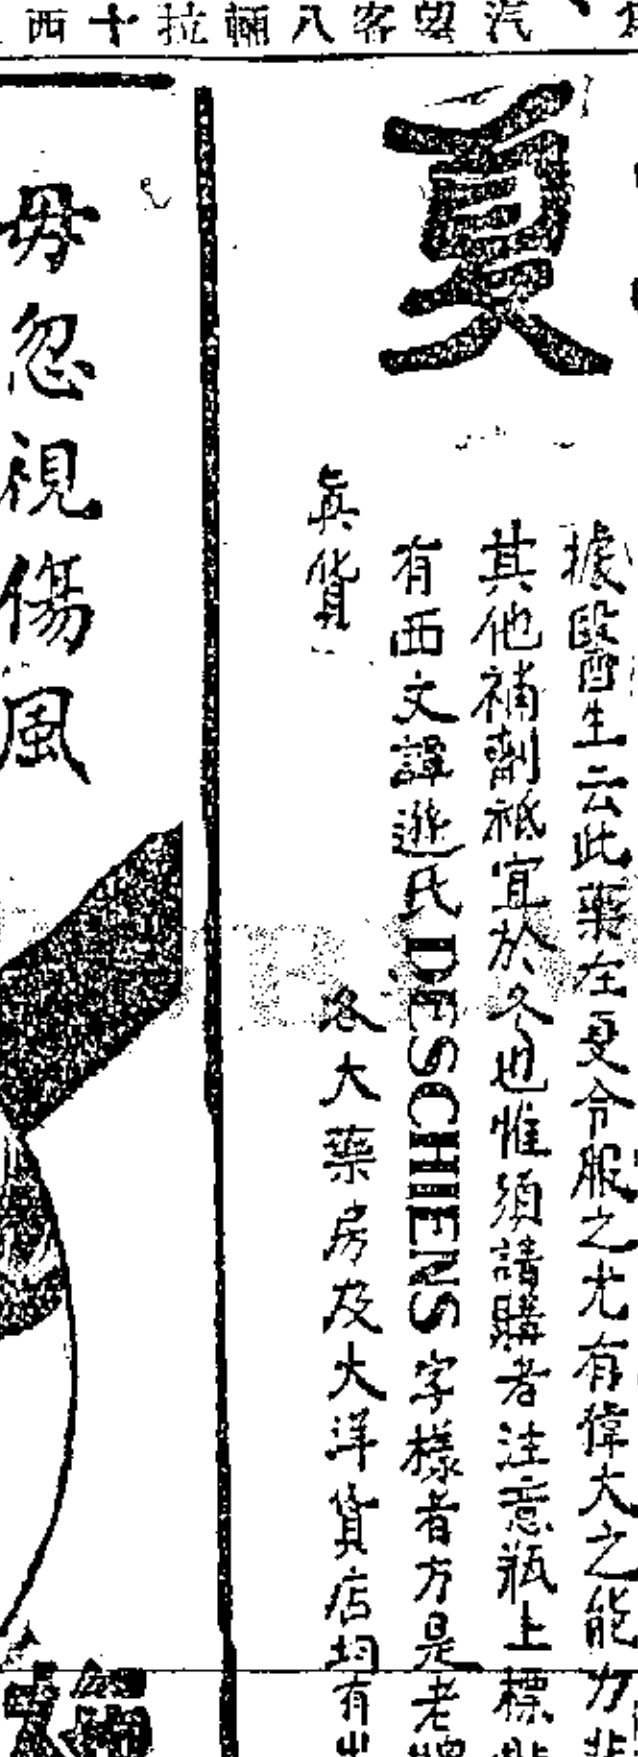 西十拉輛八客望汽
夏
據段醫生云此藥在夏令服之尤有偉大之能力非
其他補劑祇宜於冬也惟須請購者注意瓶上標
有西文譚遜氏DESCHIENS字樣者方是老牌
真貨
各大藥房及大洋貨店均有出
毋忽視傷風